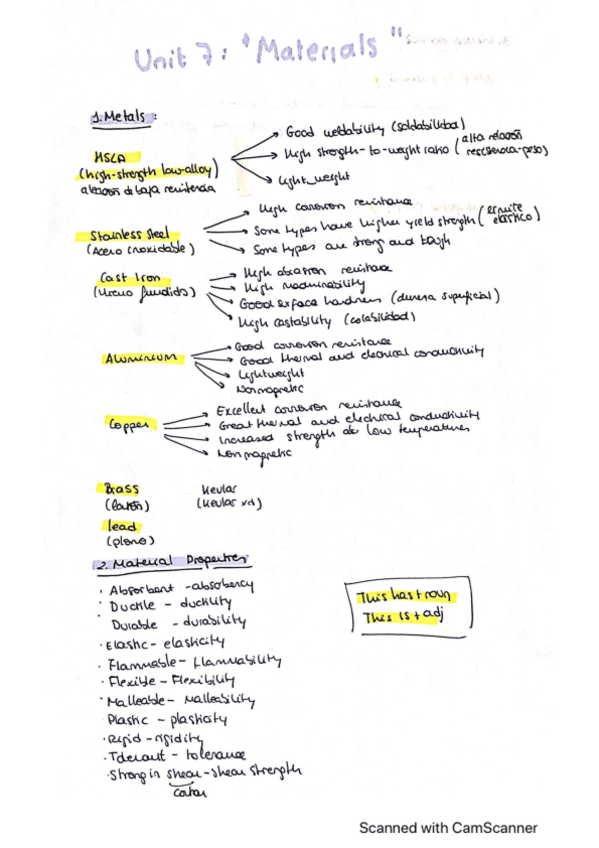 Unit 7: "Materials"
1. Metals:
HSLA
(high-strength low-alloy)
aleación de baja resistencia
Good weldability (soldabilidad)
High strength-to-weight ratio (alta relación
resistencia-peso)
Light_weight
Stainless steel
(Acero inoxidable)
High corrosion resistance
Some types have higher yield strength (límite
elástico)
Some types are strong and tough
Cast Iron
(Hierro fundido)
High abrasion resistance
High machinability
Good surface hardness (dureza superficial)
High castability (colabilidad)
Aluminium
Good corrosion resistance
Good thermal and electrical conductivity
Lightweight
Nonmagnetic
Copper
Excellent corrosion resistance
Great thermal and electrical conductivity
Increased strength at low temperatures
Non magnetic
Brass
(latón)
Kevlar
lead
(plomo)
2. Material Properties
· Absorbent - absorbency
· Ductile - ductility
Durable - durability
· Elastic - elasticity
· Flammable - flammability
· Flexible - Flexibility
· Malleable - Malleability
Plastic - plasticity
· Rigid - rigidity
· Tolerant - tolerance
· Strong in shear - shear strength
This has + noun
This is + adj
Scanned with CamScanner